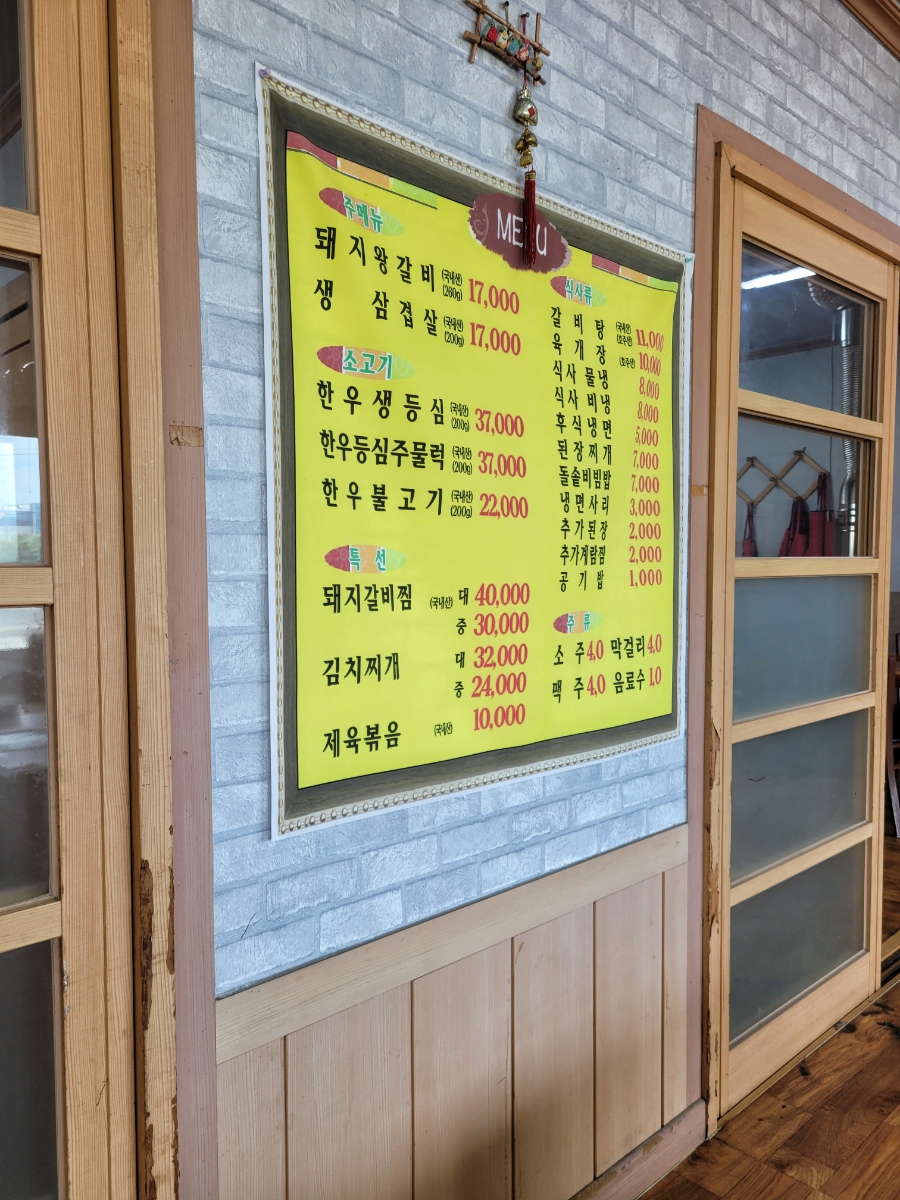 MENU
주메뉴
돼지왕갈비 (국내산) (260g) 17,000
생 삼겹살 (국내산) (200g) 17,000
소고기
한우생등심 (국내산) (200g) 37,000
한우등심주물럭 (국내산) (200g) 37,000
한우불고기 (국내산) (200g) 22,000
특선
돼지갈비찜 (국내산) 대 40,000
중 30,000
김치찌개 대 32,000
중 24,000
제육볶음 (국내산) 10,000
식사류
갈비탕 (국내산) (호주산) 11,000
육개장 (호주산) 10,000
식사물냉 8,000
식사비냉 8,000
후식냉면 5,000
된장찌개 7,000
돌솥비빔밥 7,000
냉면사리 3,000
추가된장 2,000
추가계람찜 2,000
공기밥 1,000
주류
소주 4,0 막걸리 4,0
맥주 4,0 음료수 1,0